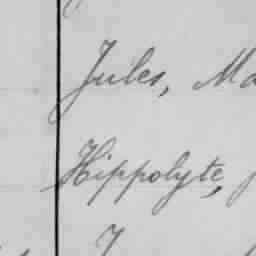 Jules, Ma
Hippolyte,